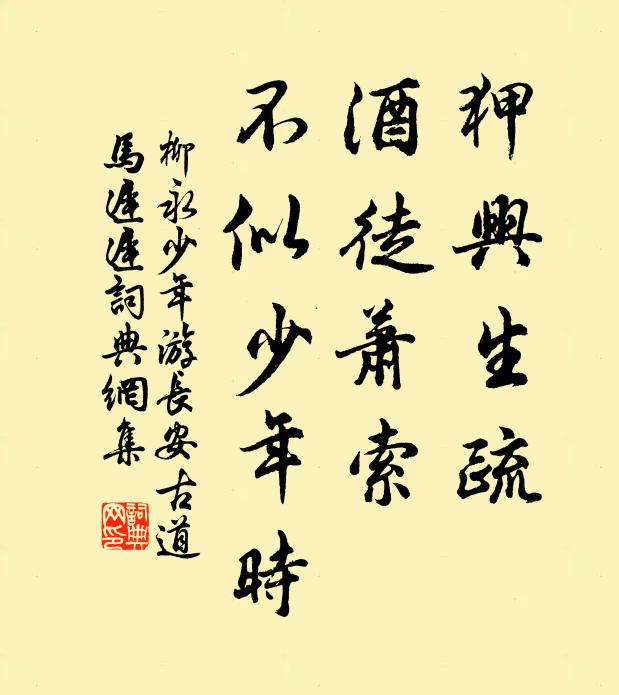 狎興生疏
酒徒蕭索
不似少年時
柳永少年游長安古道
馬遲遲詞典網集
詞典网印